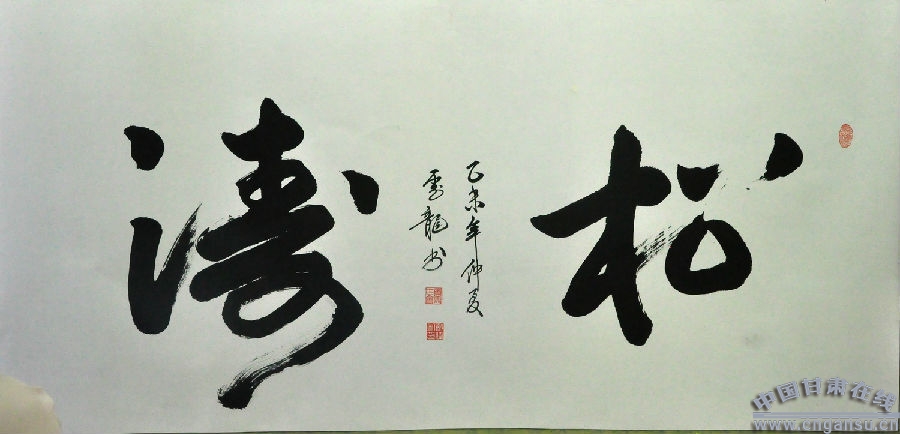 松濤
乙未年仲夏
雲龍书
中国甘肃在线
www.cngansu.cn